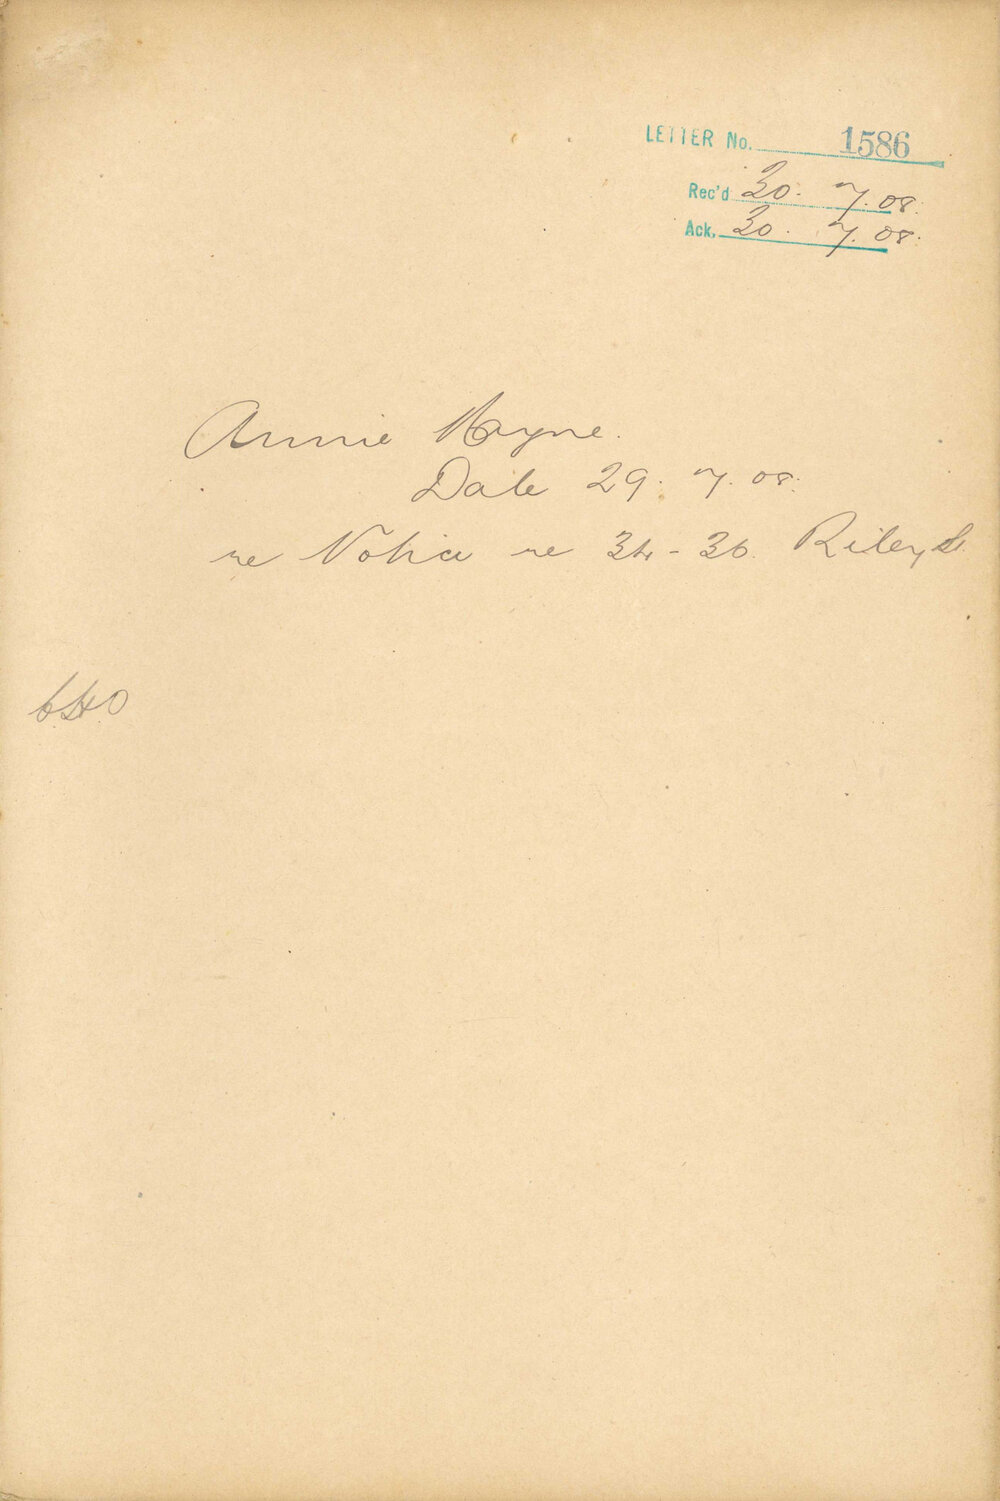 LETTER No. 1586
Rec'd 30. 7. 08.
Ack. 30. 7. 08.
Annie Hayne.
Date 29. 7. 08.
re Notice re 34-36 Riley St
CHO